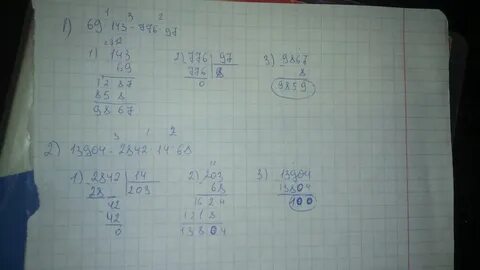 1 3 2
1) 69 · 143 - 776 : 97
1) 143
69
1287
858
9867
2) 776 | 97
776 | 8
0
3) 9867
8
9859
3 1 2
2) 13904 - 2842 : 14 · 68
1) 2842 | 14
28 | 203
42
42
0
2) 203
68
1624
1218
13804
3) 13904
13804
100